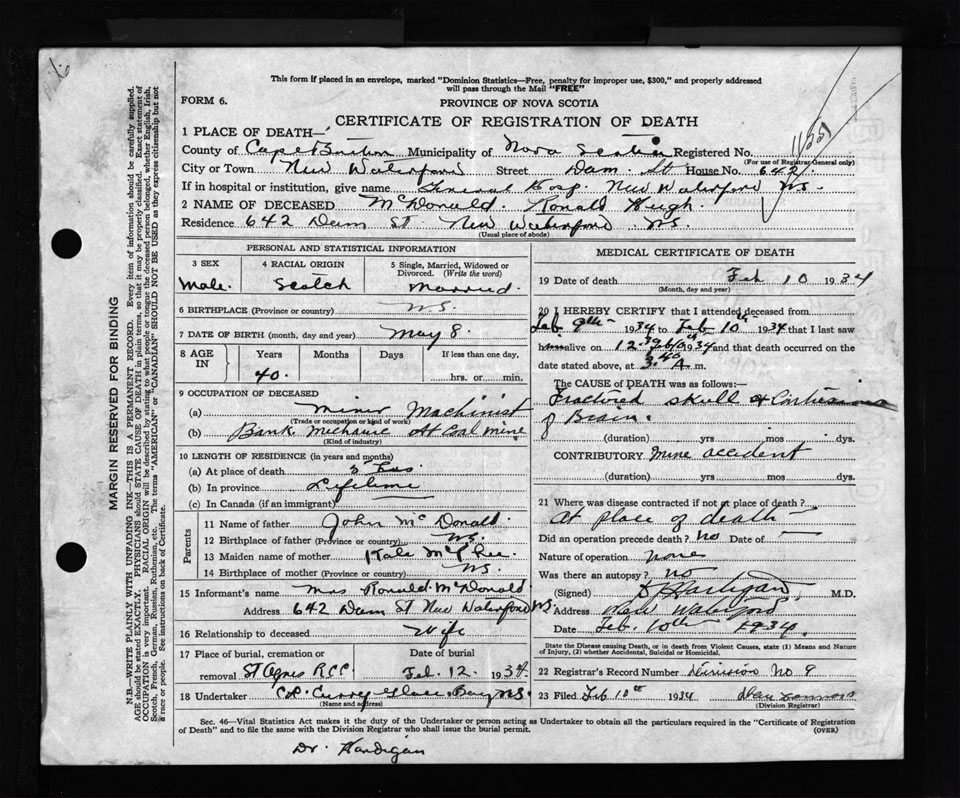 This form if placed in an envelope, marked "Dominion Statistics—Free, penalty for improper use, $300," and properly addressed
will pass through the Mail "FREE"
FORM 6.
PROVINCE OF NOVA SCOTIA
CERTIFICATE OF REGISTRATION OF DEATH
1 PLACE OF DEATH—
County of Cape Breton Municipality of Nova Scotia Registered No.
(For use of Registrar General only)
City or Town New Waterford Street Dam. St House No. 642.
If in hospital or institution, give name General Hosp. New Waterford NS.
2 NAME OF DECEASED McDonald. Ronald Hugh.
Residence 642 Dam St New Waterford NS.
(Usual place of abode)
PERSONAL AND STATISTICAL INFORMATION
3 SEX
Male.
4 RACIAL ORIGIN
Scotch
5 Single, Married, Widowed or
Divorced. (Write the word)
Married.
6 BIRTHPLACE (Province or country) NS.
7 DATE OF BIRTH (month, day and year) May 8
8 AGE IN
Years Months Days If less than one day,
40. hrs. or min.
9 OCCUPATION OF DECEASED
(a) Miner Machinist
(Trade or occupation or kind of work)
(b) Bank Mechanic At Coal Mine
(Kind of industry)
10 LENGTH OF RESIDENCE (in years and months)
(a) At place of death
(b) In province Lifetime
(c) In Canada (if an immigrant)
Parents
11 Name of father John McDonald.
12 Birthplace of father (Province or country) NS.
13 Maiden name of mother Kate McPhee.
14 Birthplace of mother (Province or country) NS.
15 Informant's name Mrs Ronald McDonald.
Address 642 Dam St New Waterford NS
16 Relationship to deceased Wife
17 Place of burial, cremation or Date of burial
removal St Agnes R C C. Feb. 12. 1934
18 Undertaker Curry Glace Bay NS.
(Name and address)
MEDICAL CERTIFICATE OF DEATH
19 Date of death Feb 10 1934
(Month, day and year)
20 I HEREBY CERTIFY that I attended deceased from
Feb 9th 1934 to Feb 10th 1934 that I last saw
him alive on 1934 and that death occurred on the
date stated above, at 3.40 A m.
The CAUSE OF DEATH was as follows:—
Fractured skull & Contusions
of Brain.
(duration) yrs mos dys.
CONTRIBUTORY Mine accident
(duration) yrs mos dys.
21 Where was disease contracted if not at place of death?
At place of death
Did an operation precede death? No Date of
Nature of operation none
Was there an autopsy? no
(Signed) Hartigan M.D.
Address New Waterford
Date Feb. 10th 1934.
State the Disease causing Death, or in death from Violent Causes, state (1) Means and Nature
of Injury, (2) whether Accidental, Suicidal or Homicidal.
22 Registrar's Record Number Division No 9
23 Filed Feb 10th 1934
(Division Registrar)
Sec. 46—Vital Statistics Act makes it the duty of the Undertaker or person acting as Undertaker to obtain all the particulars required in the "Certificate of Registration
of Death" and to file the same with the Division Registrar who shall issue the burial permit. (OVER)
Dr. Hardigan
MARGIN RESERVED FOR BINDING
N.B.—WRITE PLAINLY WITH UNFADING INK—THIS IS A PERMANENT RECORD. Every item of information should be carefully supplied.
AGE should be stated EXACTLY. PHYSICIANS should STATE CAUSE OF DEATH in plain terms, so that it may be properly classified. Exact statement of
OCCUPATION is very important. RACIAL ORIGIN will be described by stating to what people or tongue the deceased person belonged, whether English, Irish,
Scotch, French, German, Russian, Ruthenian, etc. The terms "AMERICAN" or "CANADIAN" SHOULD NOT BE USED as they express citizenship but not
a race or people. See instructions on back of Certificate.